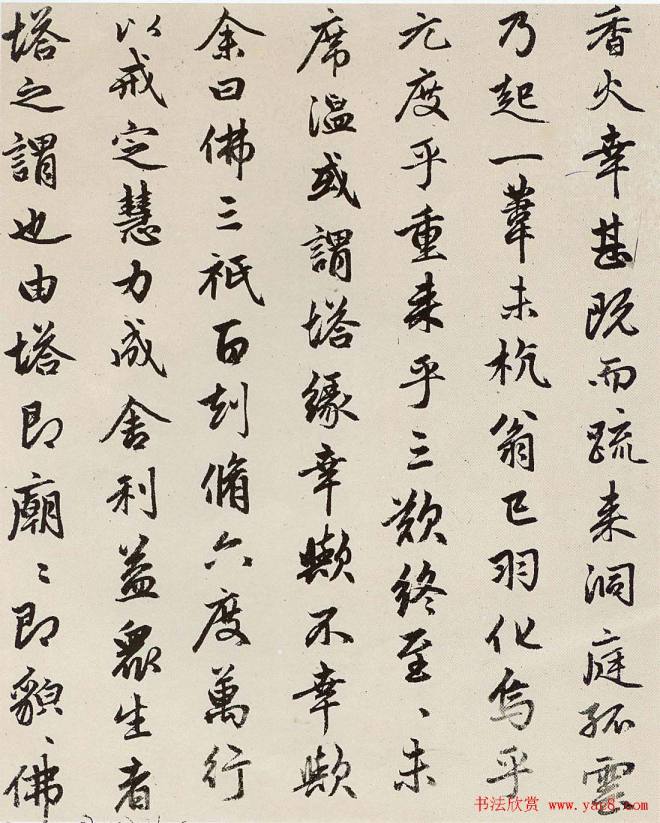 香火幸甚既而疏来洞庭孤雲
乃起一葦未杭翁已羽化烏乎
元度乎重来乎三歎終至〻未
席溫或謂塔緣幸歟不幸歟
余曰佛三祇百刧脩六度萬行
以戒定慧力成舍利益眾生者
塔之謂也由塔即廟〻即貌〻佛
书法欣赏 www.yac8.com